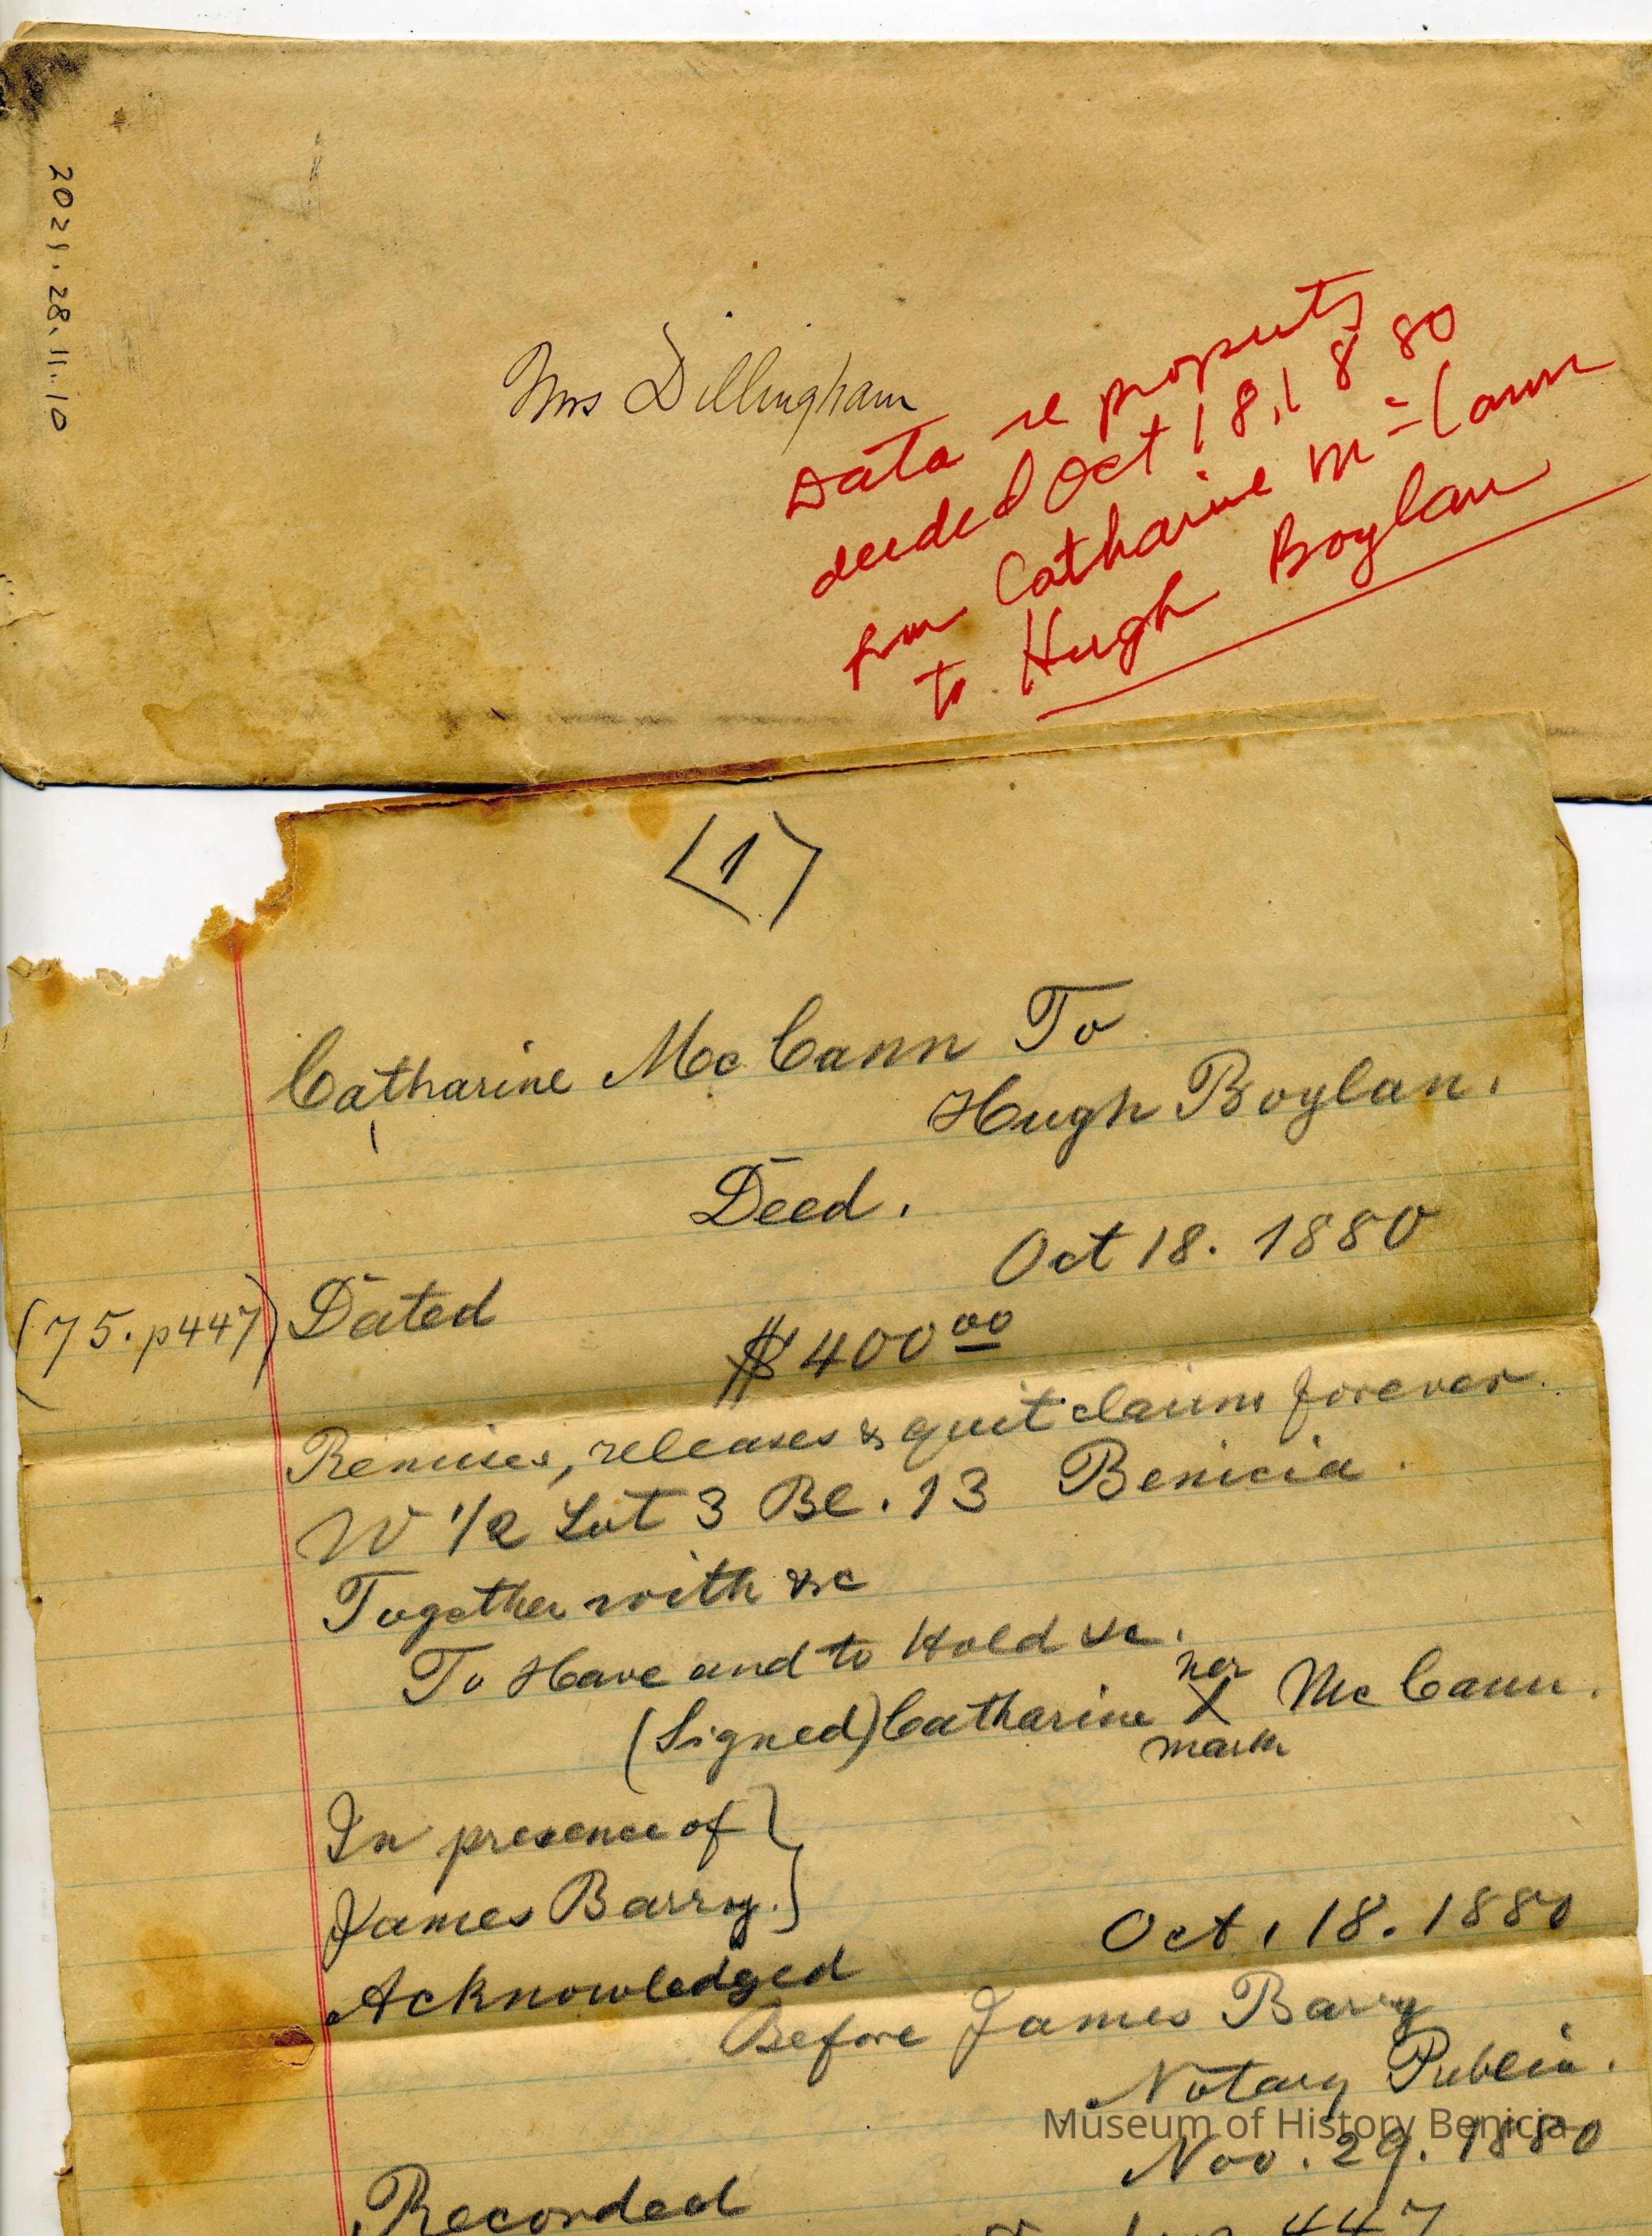 2021.28.11.10
Mrs Dillingham
Data re property
deeded Oct 18, 1880
from Catharine Mc=Cann
to Hugh Boylan
<1>
Catharine McCann To
Hugh Boylan.
Deed.
Oct 18. 1880
(75. p447) Dated
$400 00
Remises, releases & quit claims forever.
W 1/2 Lot 3 Bl. 13 Benicia.
Together with &c
To Have and to Hold &c.
her
(Signed) Catharine X McCann.
mark
In presence of }
James Barry. }
Oct. 18. 1880
Acknowledged
Before James Barry
Notary Public.
Museum of History Benicia
Nov. 29. 1880
Recorded
447